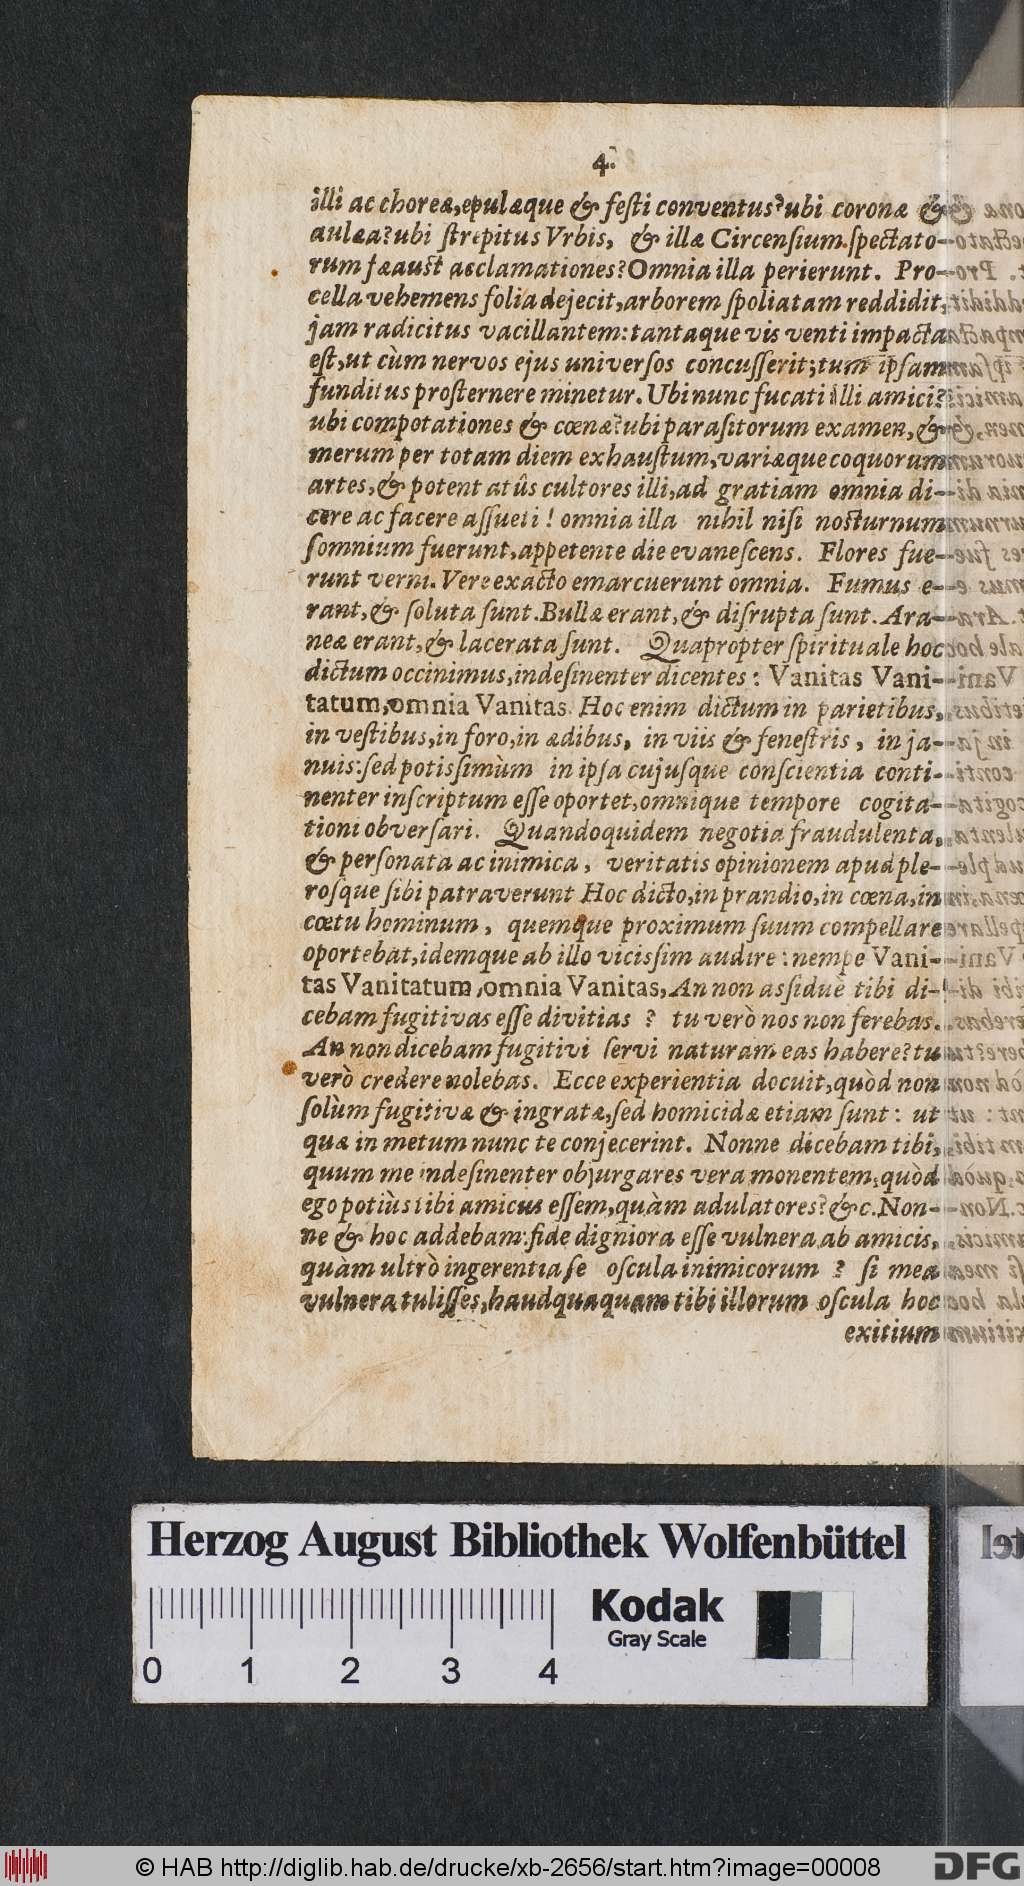 4
illi ac choreæ, epulæque & festi conventus? ubi coronæ &
aulæa? ubi strepitus Vrbis, & illæ Circensium spectato-
rum fæaust acclamationes? Omnia illa perierunt. Pro-
cella vehemens folia dejecit, arborem spoliatam reddidit,
jam radicitus vacillantem: tantaque vis venti impacta
est, ut cùm nervos ejus universos concusserit; tum ipsam
funditus prosternere minetur. Ubi nunc fucati illi amici?
ubi compotationes & cœnæ? ubi parasitorum examen, &
merum per totam diem exhaustum, variæque coquorum
artes, & potentatûs cultores illi, ad gratiam omnia di-
cere ac facere assueti! omnia illa nihil nisi nocturnum
somnium fuerunt, appetente die evanescens. Flores fue-
runt verni. Vere exacto emarcuerunt omnia. Fumus e-
rant, & soluta sunt. Bullæ erant, & disrupta sunt. Ara-
neæ erant, & lacerata sunt. Quapropter spirituale hoc
dictum occinimus, indesinenter dicentes: Vanitas Vani-
tatum, omnia Vanitas. Hoc enim dictum in parietibus,
in vestibus, in foro, in ædibus, in viis & fenestris, in ja-
nuis: sed potissimùm in ipsa cujusque conscientia conti-
nenter inscriptum esse oportet, omnique tempore cogita-
tioni obversari. Quandoquidem negotia fraudulenta,
& personata ac inimica, veritatis opinionem apud ple-
rosque sibi patraverunt Hoc dicto, in prandio, in cœna, in
cœtu hominum, quemque proximum suum compellare
oportebat, idemque ab illo vicissim audire: nempe Vani-
tas Vanitatum, omnia Vanitas, An non assiduè tibi di-
cebam fugitivas esse divitias? tu verò nos non ferebas.
An non dicebam fugitivi servi naturam eas habere? tu
verò credere nolebas. Ecce experientia docuit, quòd non
solùm fugitivæ & ingratæ, sed homicidæ etiam sunt: ut
quæ in metum nunc te conjecerint. Nonne dicebam tibi,
quum me indesinenter objurgares vera monentem, quòd
ego potiùs tibi amicus essem, quàm adulatores? &c. Non-
ne & hoc addebam: fide digniora esse vulnera ab amicis,
quàm ultrò ingerentia se oscula inimicorum? si mea
vulnera tulisses, haudquaquam tibi illorum oscula hoc
exitium
Herzog August Bibliothek Wolfenbüttel
0 1 2 3 4
Kodak
Gray Scale
© HAB http://diglib.hab.de/drucke/xb-2656/start.htm?image=00008
DFG